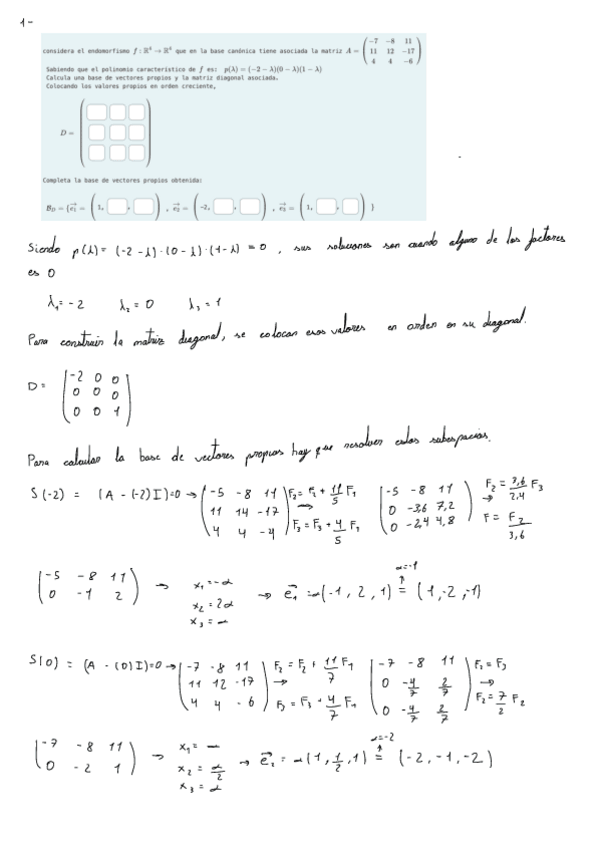 1-
considera el endomorfismo f : ℝ³ → ℝ³ que en la base canónica tiene asociada la matriz A = ( -7 -8 11
11 12 -17
4 4 -6 )
Sabiendo que el polinomio característico de f es: p(λ) = (-2 - λ)(0 - λ)(1 - λ)
Calcula una base de vectores propios y la matriz diagonal asociada.
Colocando los valores propios en orden creciente,
D =
Completa la base de vectores propios obtenida:
B_D = {e₁ = (1, , ) , e₂ = (-2, , ) , e₃ = (1, , ) }
Siendo p(λ) = (-2 - λ)·(0 - λ)·(1 - λ) = 0 , sus soluciones son cuando alguno de los factores
es 0
λ₁ = -2 λ₂ = 0 λ₃ = 1
Para construir la matriz diagonal, se colocan esos valores en orden en su diagonal.
D = ( -2 0 0
0 0 0
0 0 1 )
Para calcular la base de vectores propios hay que resolver estos subespacios.
S(-2) = (A - (-2)I)=0 → ( -5 -8 11 F₂ = F₂ + 11/5 F₁ ( -5 -8 11 F₂ = 3,6/2,4 F₃
11 14 -17 → 0 -3,6 7,2 →
4 4 -4 ) F₃ = F₃ + 4/5 F₁ 0 -2,4 4,8 ) F = F₂/3,6
( -5 -8 11 x₁ = -α α=-1
0 -1 2 ) → x₂ = 2α → e₁ = α(-1, 2, 1) = (1, -2, -1)
x₃ = α
S(0) = (A - (0)I)=0 → ( -7 -8 11 F₂ = F₂ + 11/7 F₁ ( -7 -8 11 F₂ = F₃
11 12 -17 → 0 -4/7 2/7 →
4 4 -6 ) F₃ = F₃ + 4/7 F₁ 0 -4/7 2/7 ) F₂ = 7/2 F₂
( -7 -8 11 x₁ = α α=-2
0 -2 1 ) → x₂ = α/2 → e₂ = α(1, 1/2, 1) = (-2, -1, -2)
x₃ = α